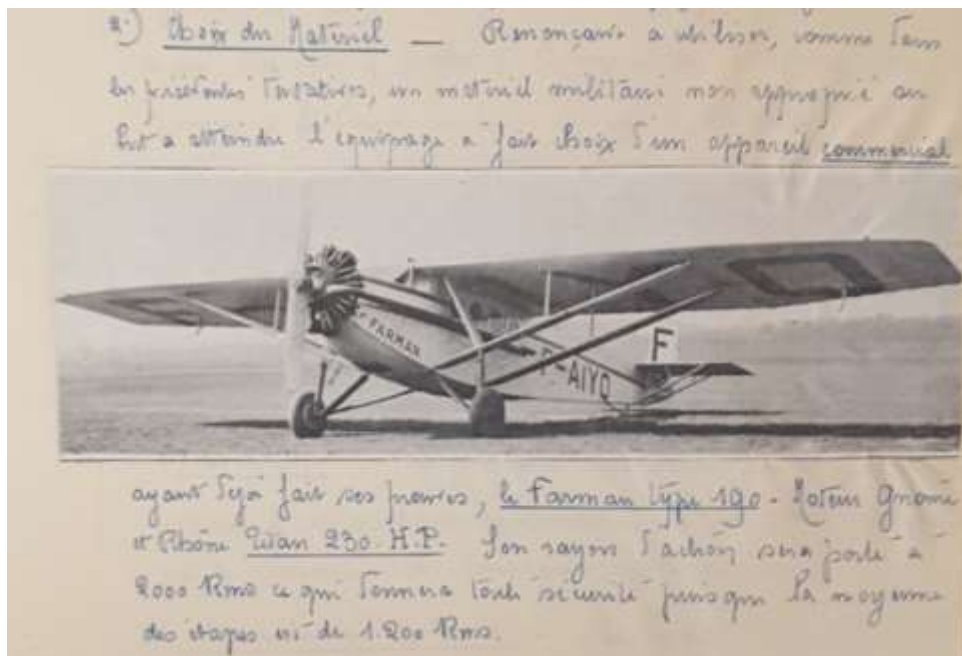 2°) Choix du Matériel — Renonçant à utiliser, comme dans
les précédentes tentatives, un matériel militaire non approprié au
but à atteindre l'équipage a fait choix d'un appareil commercial
FARMAN
F-AIYO
F
ayant déjà fait ses preuves, le Farman type 190 - Moteur Gnome
et Rhône Titan 230 H.P. Son rayon d'action sera porté à
2000 Kms ce qui donnera toute sécurité puisque la moyenne
des étapes est de 1.200 Kms.